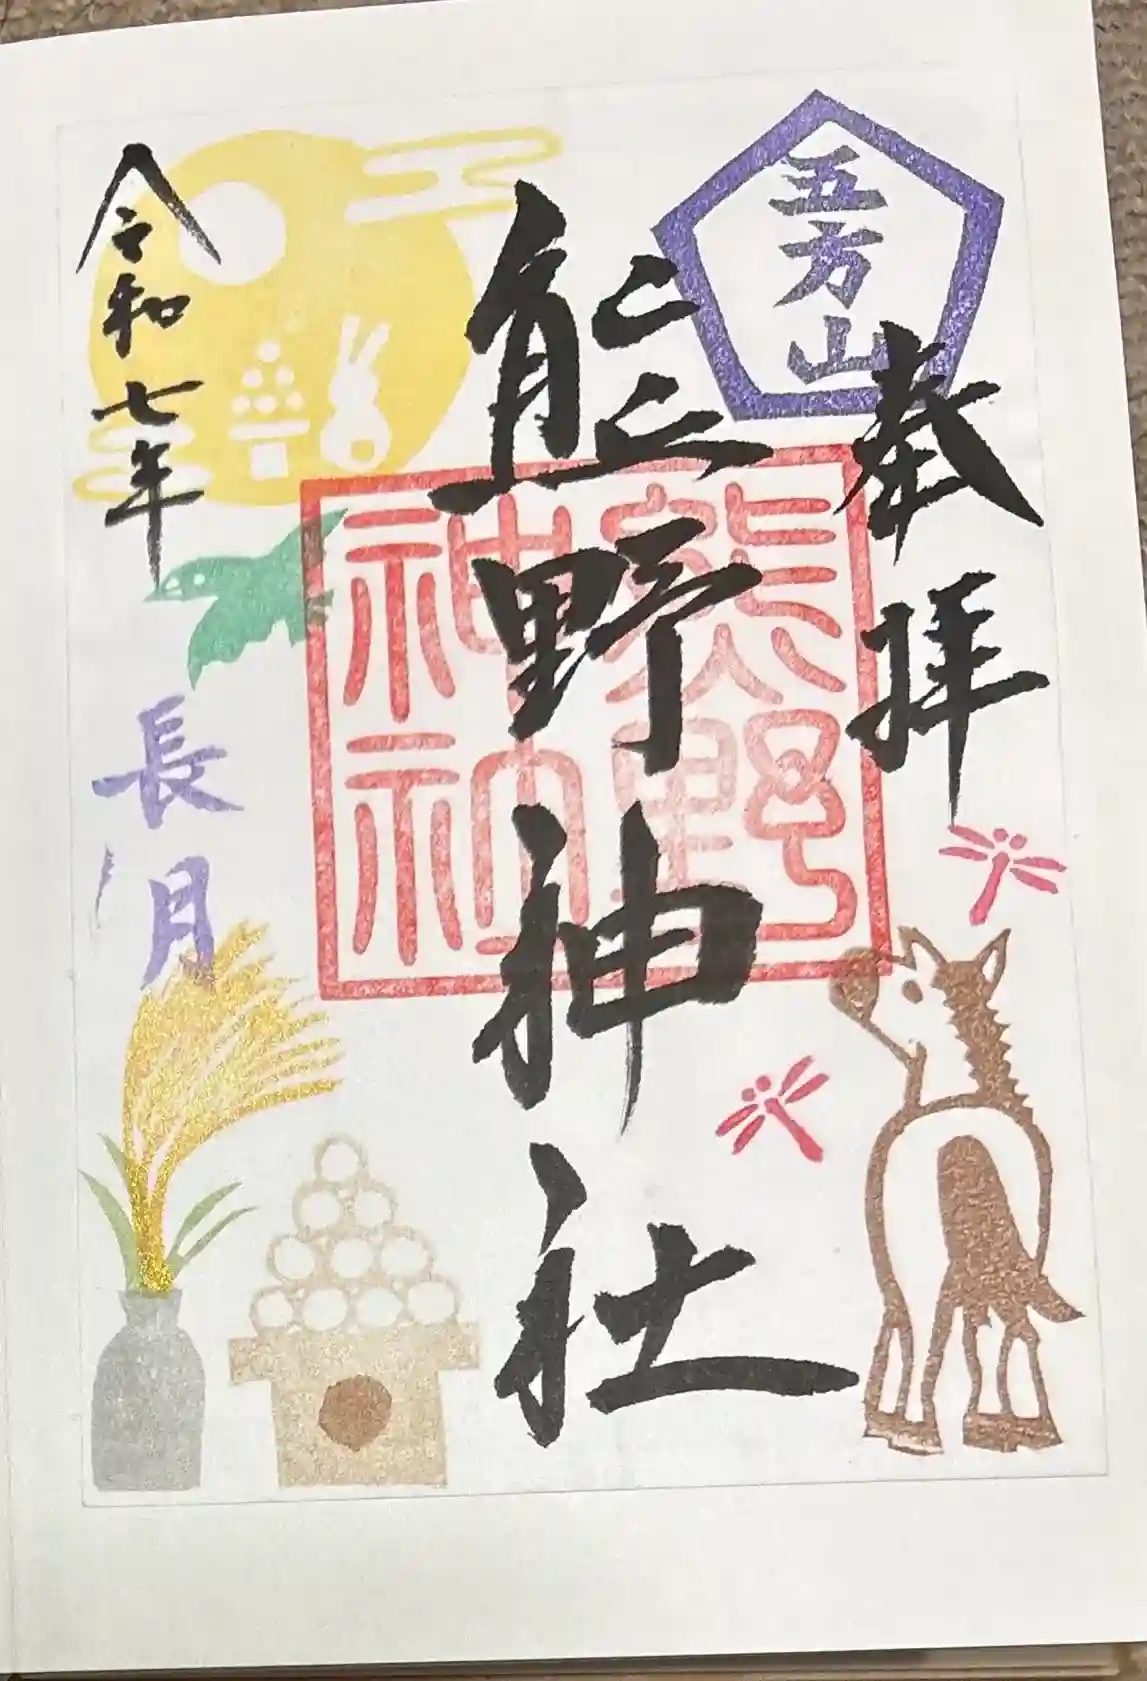 五方山
奉拝
熊野神社
熊野
神社
令和七年
長月